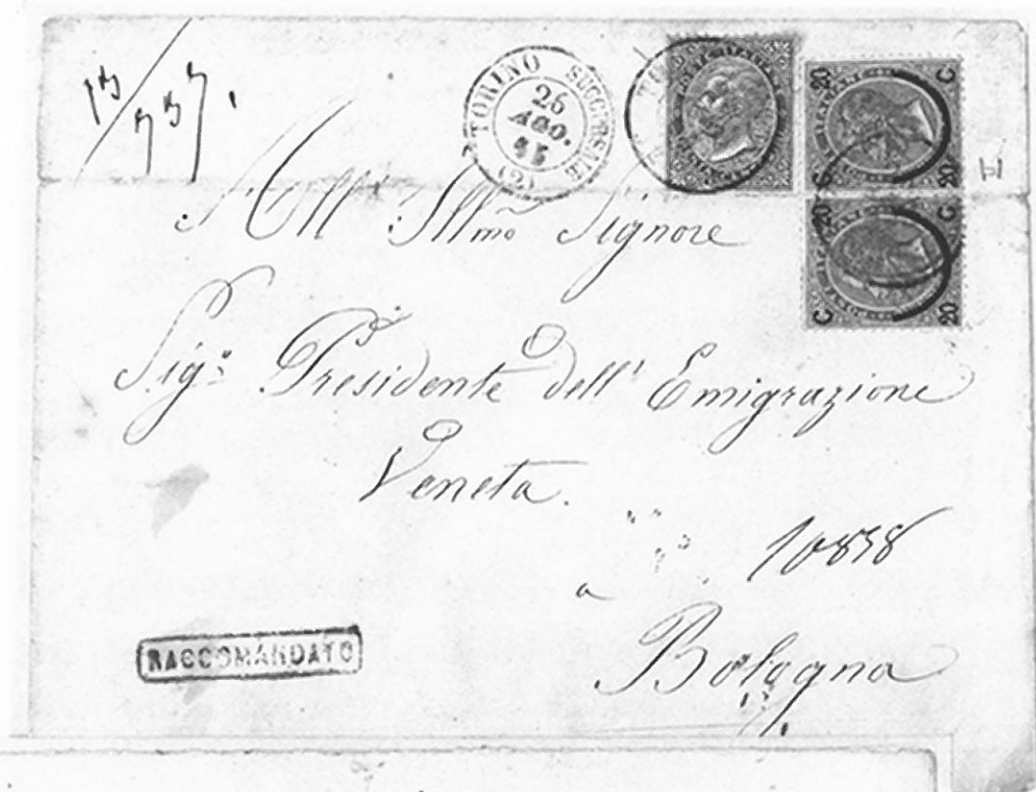 TORINO SUCCURSALE
26
AGO.
(2)
C 20
20 C
C 20
20 C
II
All' Illmo Signore
Sigr. Presidente dell' Emigrazione
Veneta.
a
Bologna
RACCOMANDATO